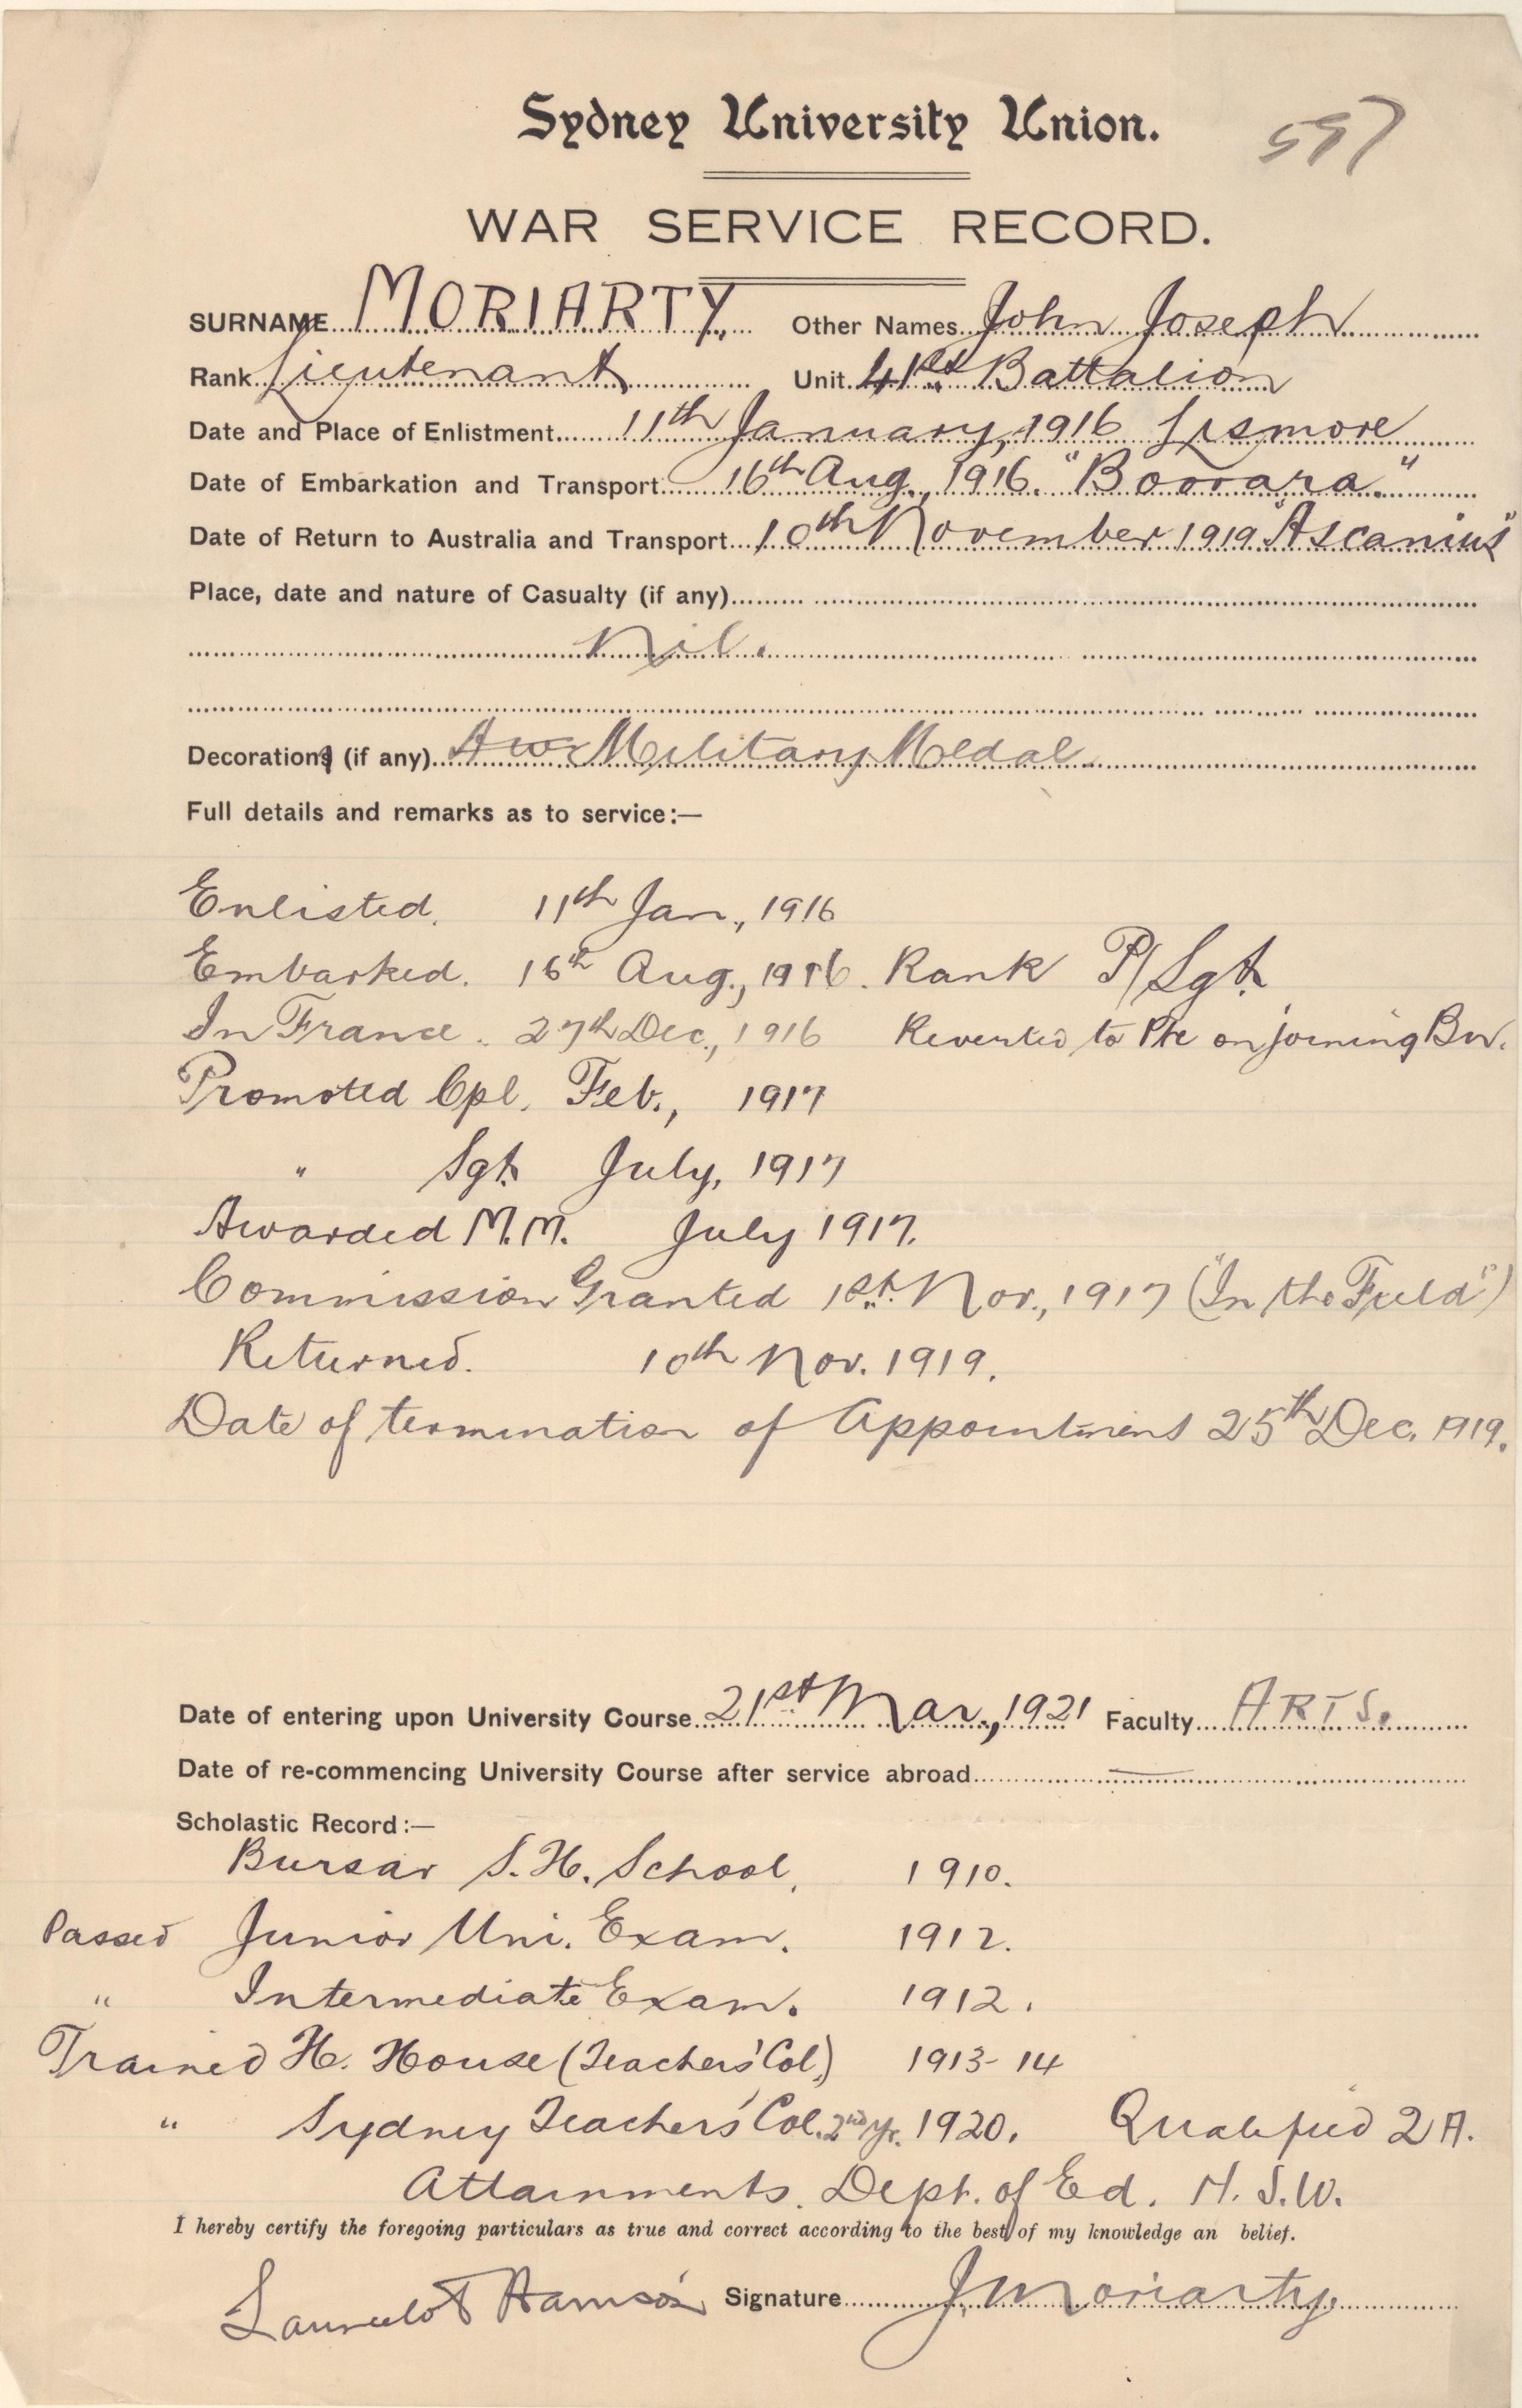 Sydney University Union.
557
WAR SERVICE RECORD.
SURNAME MORIARTY. Other Names John Joseph
Rank Lieutenant Unit 41st Battalion
Date and Place of Enlistment 11th January, 1916 Lismore
Date of Embarkation and Transport 16th Aug., 1916. "Boorara."
Date of Return to Australia and Transport 10th November 1919 "Ascanius"
Place, date and nature of Casualty (if any)
Nil.
Decorations (if any) Military Medal.
Full details and remarks as to service:—
Enlisted. 11th Jan., 1916
Embarked. 16th Aug., 1916. Rank P/Sgt.
In France. 27th Dec., 1916 Reverted to Pte on joining Bn.
Promoted Cpl. Feb., 1917
" Sgt. July, 1917
Awarded M.M. July 1917.
Commission Granted 1st. Nov., 1917 ("In the Field")
Returned. 10th Nov. 1919.
Date of termination of Appointment 25th Dec. 1919.
Date of entering upon University Course 21st Mar., 1921 Faculty ARTS.
Date of re-commencing University Course after service abroad —
Scholastic Record:—
Bursar S. H. School, 1910.
Passed Junior Uni. Exam. 1912.
" Intermediate Exam. 1912.
Trained H. House (Teachers' Col.) 1913-14
" Sydney Teachers' Col. 2nd Yr. 1920. Qualified 2A.
Attainments. Dept. of Ed. N.S.W.
I hereby certify the foregoing particulars as true and correct according to the best of my knowledge an belief.
Signature J. Moriarty.